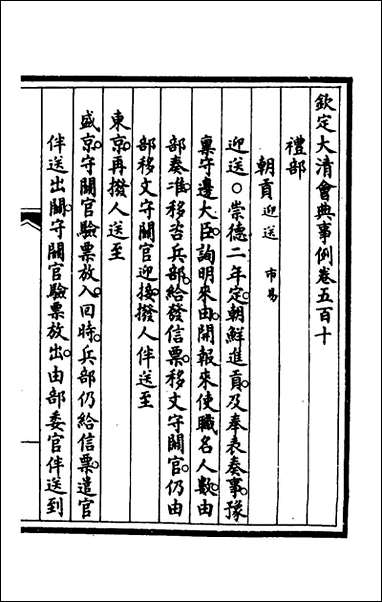 欽定大清會典事例卷五百十
禮部
朝貢 迎送 市易
迎送○崇德二年定。朝鮮進貢。及奉表奏事。豫
稟守邊大臣。詢明來由。開報來使職名人數。由
部奏准。移咨兵部。給發信票。移文守關官。仍由
部移文守關官迎接。撥人伴送至
東京。再撥人送至
盛京。守關官驗票放入。回時。兵部仍給信票。遣官
伴送出關。守關官驗票放出。由部委官伴送到